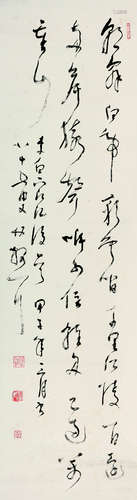 朝辭白帝彩雲間千里江陵一日還
兩岸猿聲啼不住輕舟已過萬
重山
李白下江陵詩 甲子年三月書
八十七叟林散